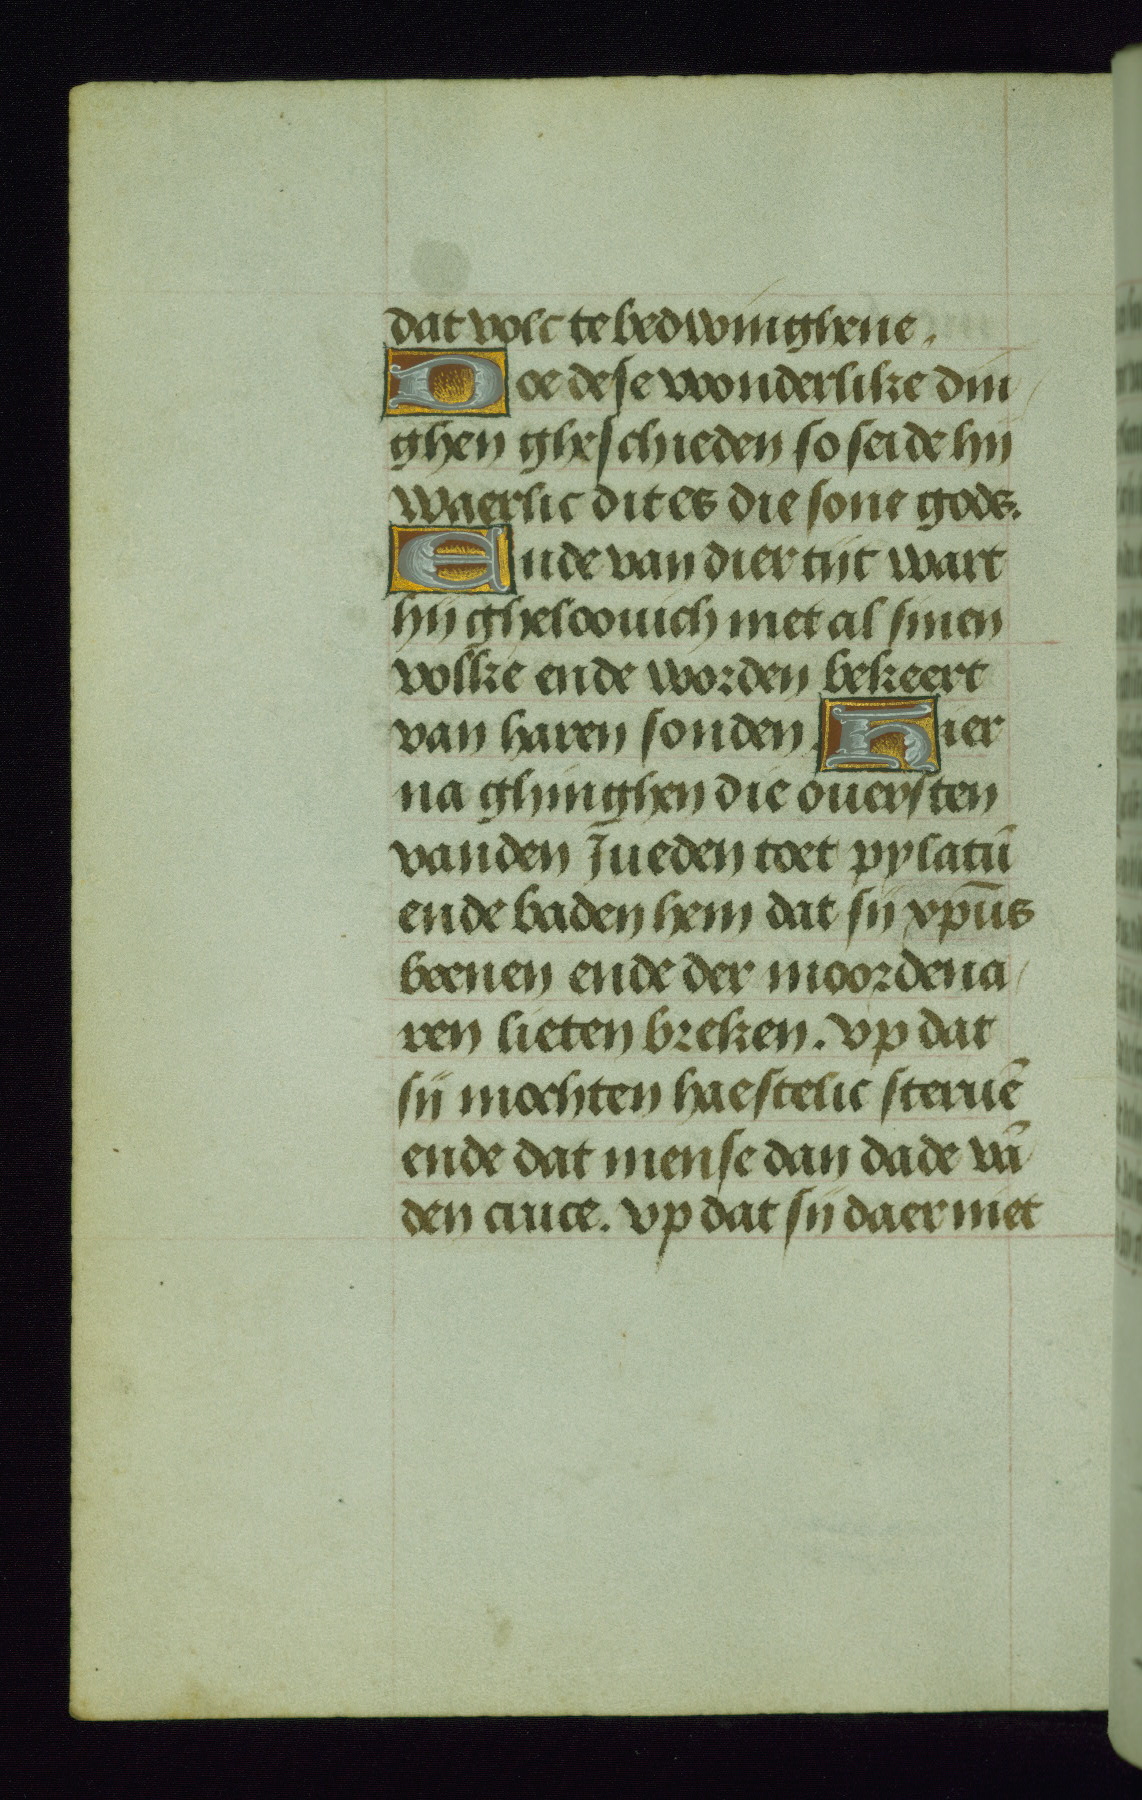 dat volc te bedwinghene.
Doe dese wonderlike din
ghen gheschieden so seide hij
waerlic dit es die sone gods.
Ende van dier tijt wart
hij gheloouich met al sinen
volke ende worden bekeert
van haren sonden. Hier
na ghinghen die ouersten
vanden Jueden toet pylatū
ende baden hem dat sij xpūs
beenen ende der moordena
ren lieten breken. vp dat
sij mochten haestelic steruē
ende dat mense dan dade vā
den cruce. vp dat sij daer niet